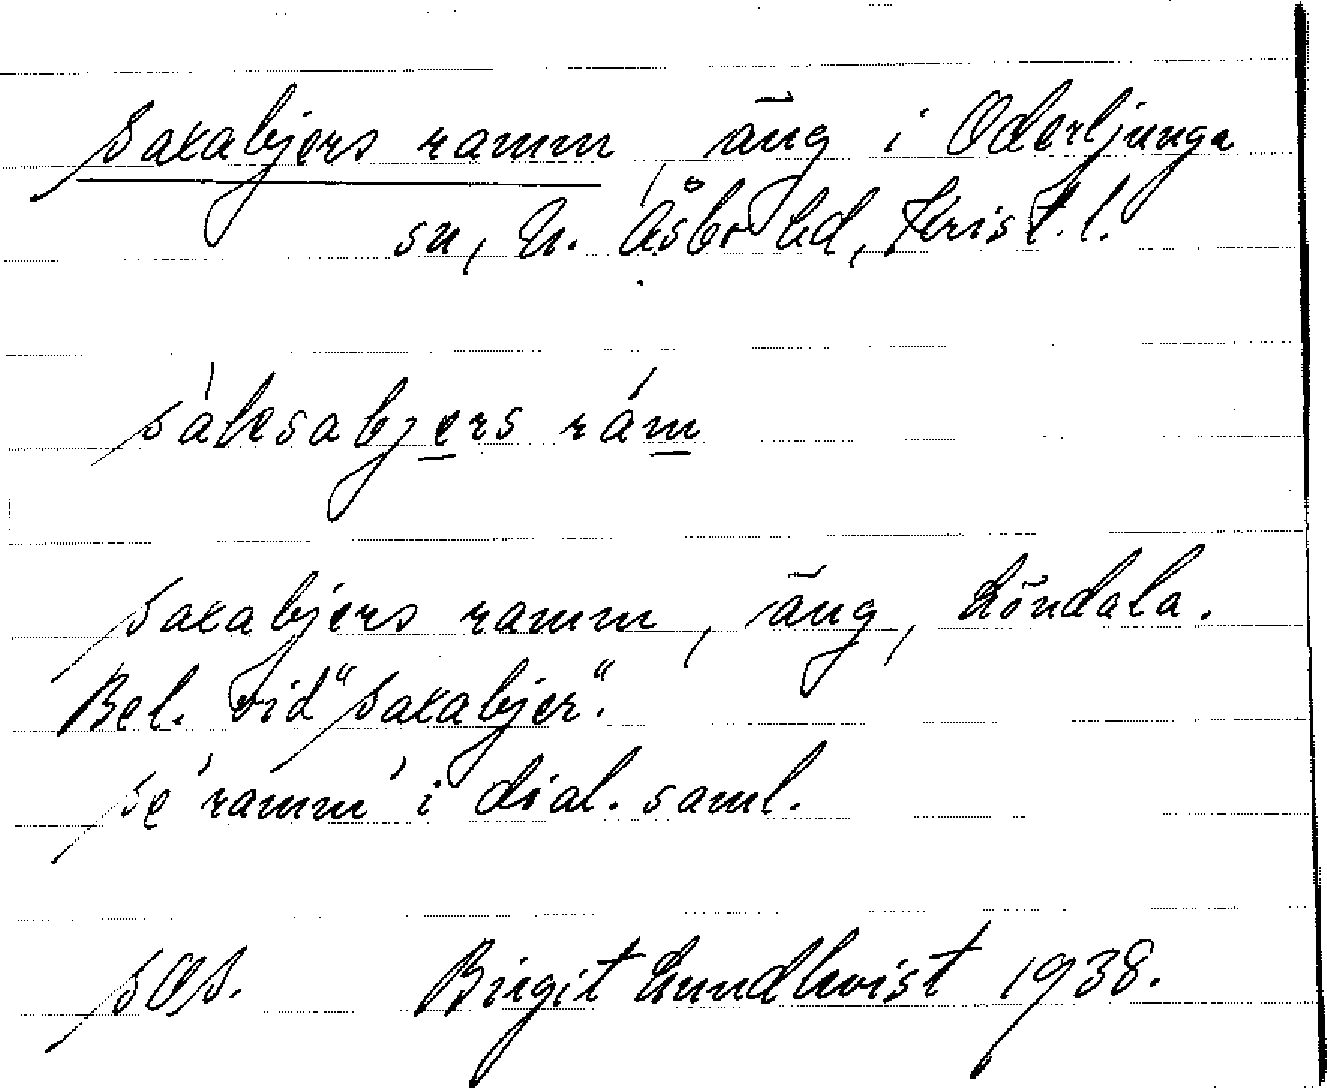 Saxabjers ramm, äng i Oderljunga
sn, N. Åsbo hd, Krist. l.
sàksabjers rám
Saxabjers ramm, äng, Löndala.
Bel. vid "Saxabjer".
Se 'ramm' i dial. saml.
SOS. Birgit Lundkvist 1938.